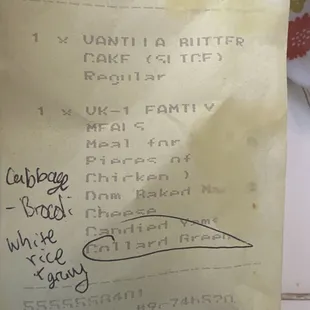 1 x VANILLA BUTTER
CAKE (SLICE)
Regular
1 x UK-1 FAMILY
MEALS
Meal for
Pieces of
Chicken )
Dom Baked Mac
Cheese
Candied Yams
Collard Green
Cabbage
- Brocoli
white
rice
+ gravy
5555558401